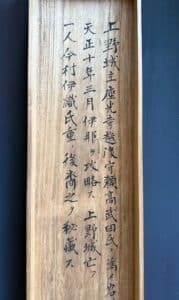 上野城主座光寺越後守頼高武田氏ニ萬ノ召
天正十年三月伊那ヲ攻略ス上野城亡フ
一人今村伊織氏重ノ後裔之ヲ秘蔵ス